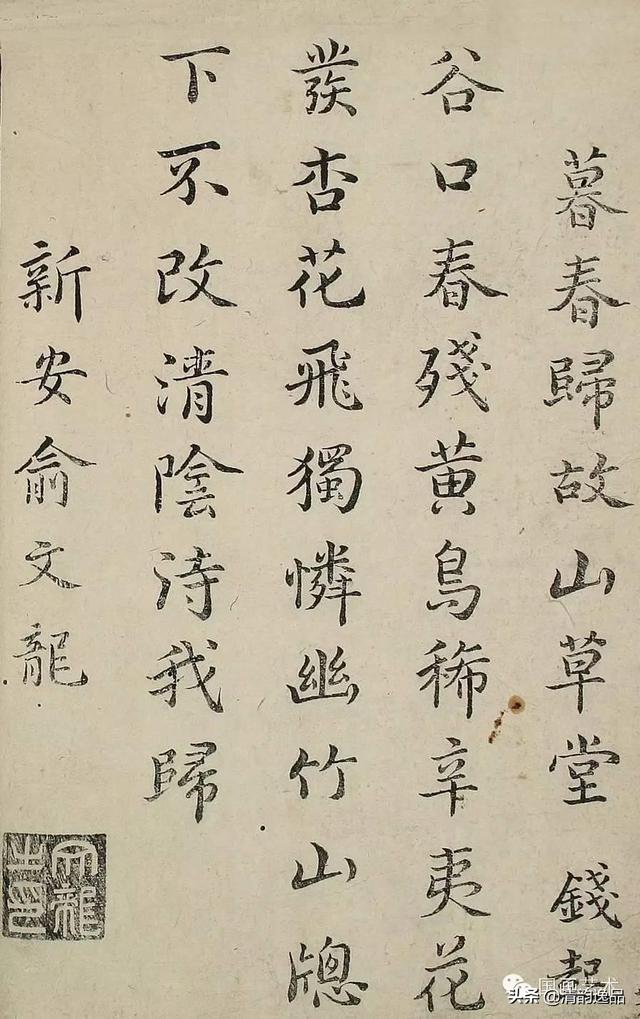 暮春歸故山草堂 錢起
谷口春殘黄鳥稀辛夷花
發杏花飛獨憐幽竹山牕
下不改清陰待我歸
新安俞文龍
国画艺术
头条 @清韵逸品